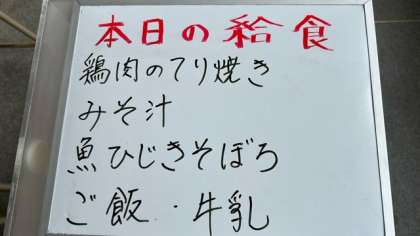 本日の給食
鶏肉のてり焼き
みそ汁
魚ひじきそぼろ
ご飯・牛乳